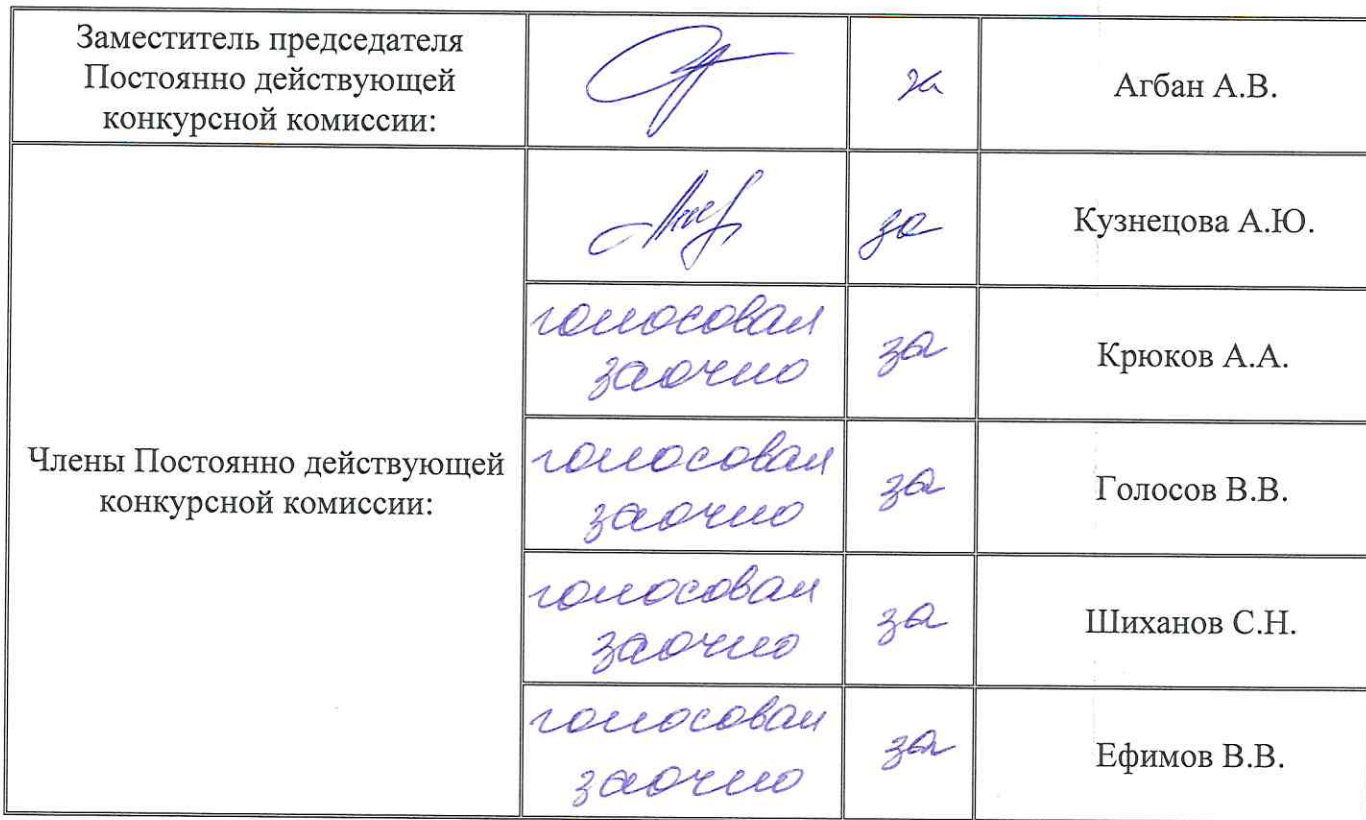 Заместитель председателя
Постоянно действующей
конкурсной комиссии:
за
Агбан А.В.
Члены Постоянно действующей
конкурсной комиссии:
за
Кузнецова А.Ю.
голосовал
заочно
за
Крюков А.А.
голосовал
заочно
за
Голосов В.В.
голосовал
заочно
за
Шиханов С.Н.
голосовал
заочно
за
Ефимов В.В.